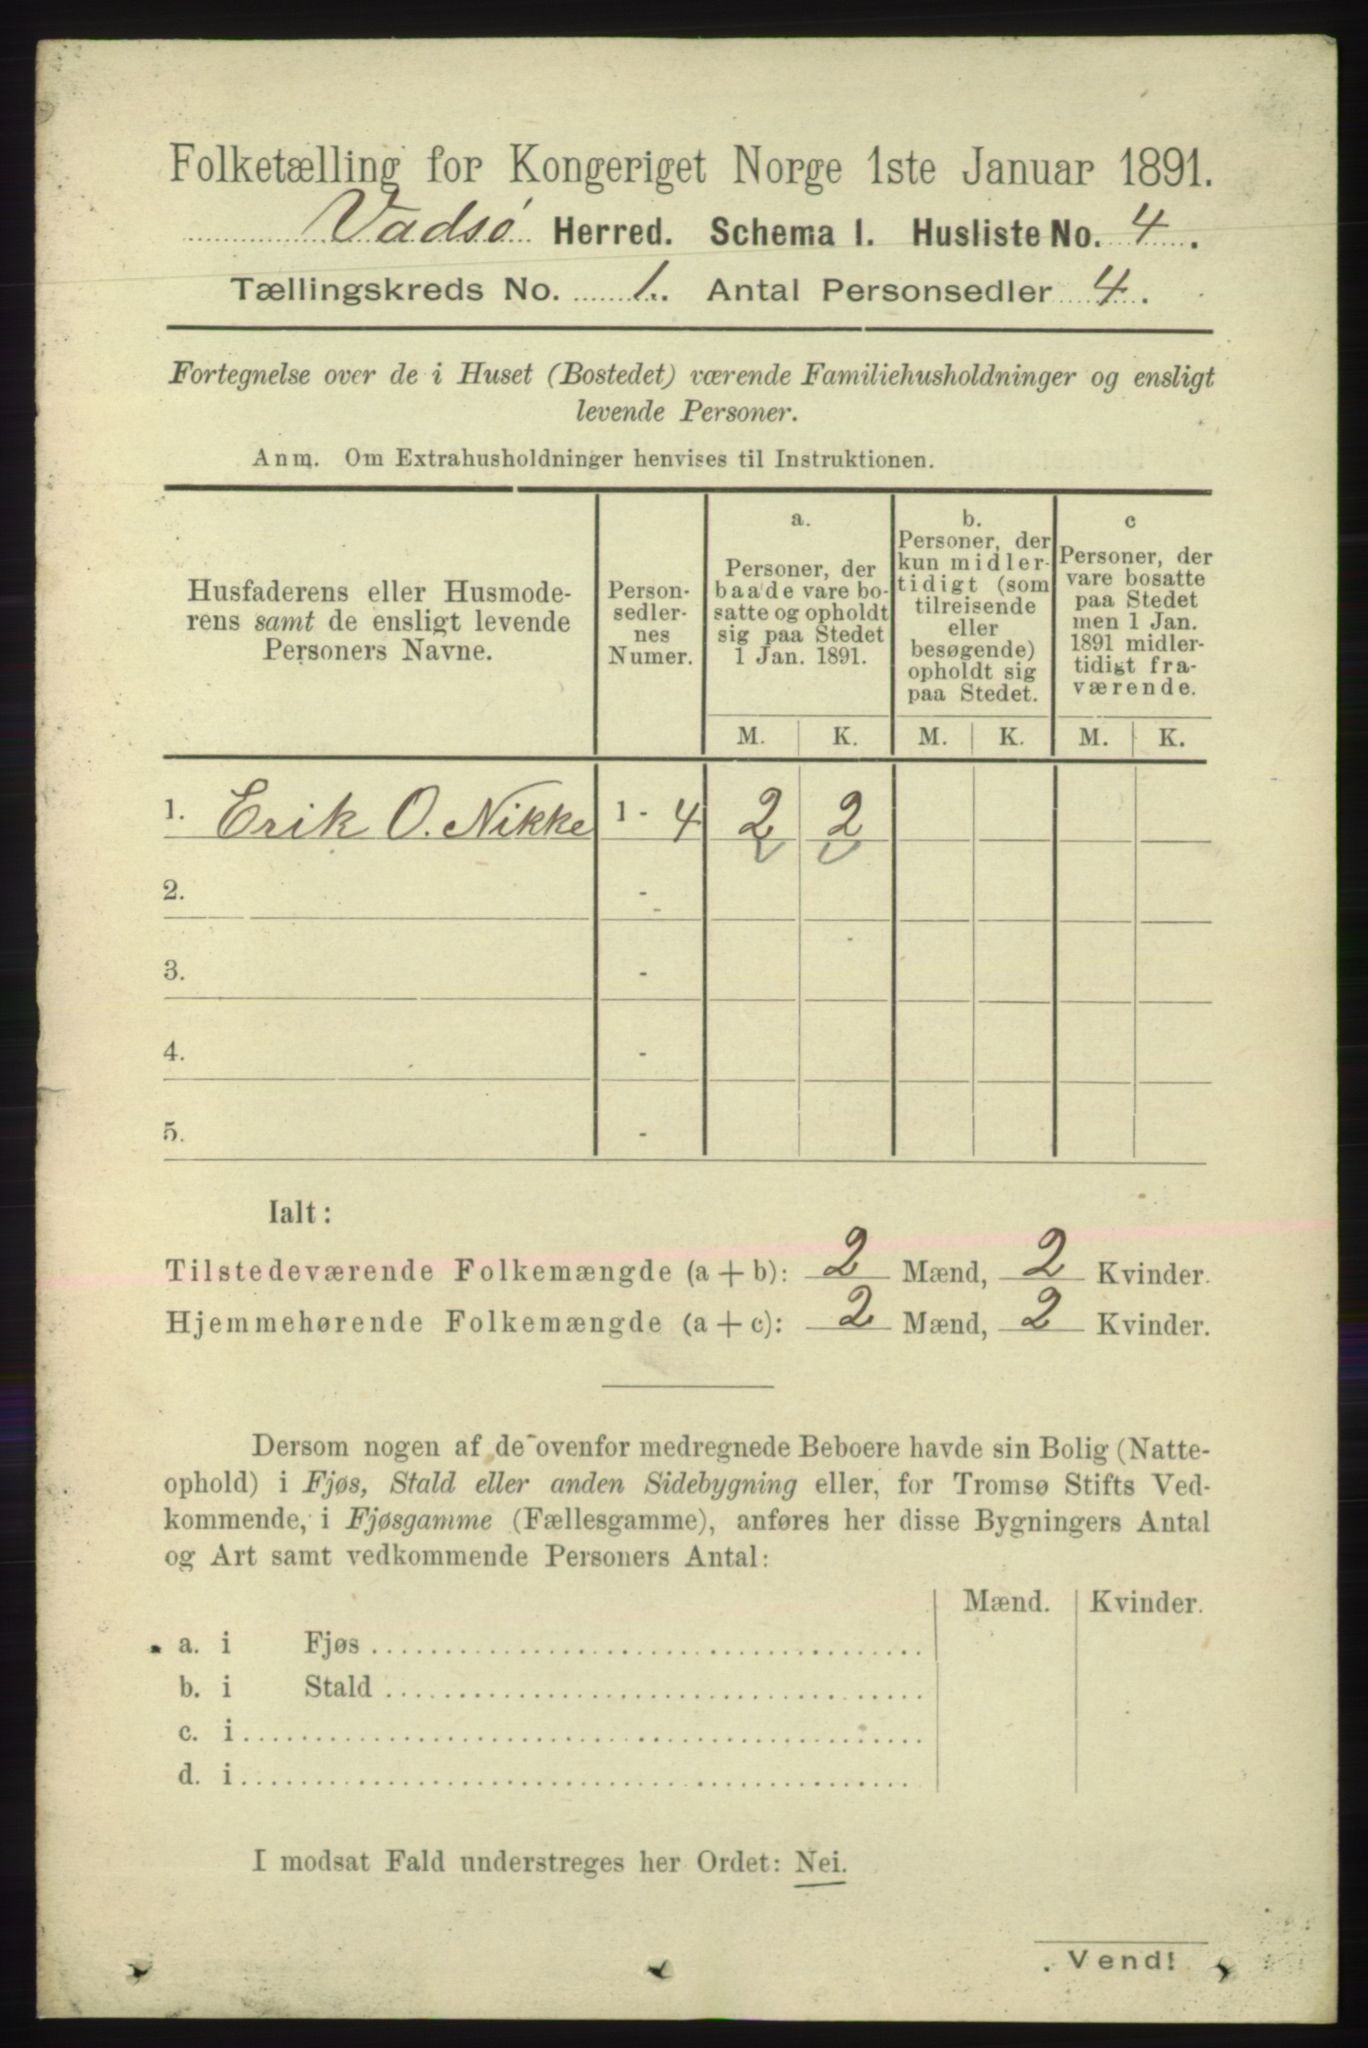 Folketælling for Kongeriget Norge 1ste Januar 1891.
Vadsø Herred. Schema I. Husliste No. 4.
Tællingskreds No. 1. Antal Personsedler 4.
Fortegnelse over de i Huset (Bostedet) værende Familiehusholdninger og ensligt
levende Personer.
Anm. Om Extrahusholdninger henvises til Instruktionen.
Husfaderens eller Husmode-
rens samt de ensligt levende
Personers Navne.
Person-
sedler-
nes
Numer.
a.
Personer, der
baade vare bo-
satte og opholdt
sig paa Stedet
1 Jan. 1891.
b.
Personer, der
kun midler-
tidigt (som
tilreisende
eller
besøgende)
opholdt sig
paa Stedet.
c
Personer, der
vare bosatte
paa Stedet
men 1 Jan.
1891 midler-
tidigt fra-
værende.
M. K. M. K. M. K.
1. Erik O. Nikke 1 - 4 2 2
2. -
3. -
4. -
5. -
Ialt:
Tilstedeværende Folkemængde (a + b): 2 Mænd, 2 Kvinder.
Hjemmehørende Folkemængde (a + c): 2 Mænd, 2 Kvinder.
Dersom nogen af de ovenfor medregnede Beboere havde sin Bolig (Natte-
ophold) i Fjøs, Stald eller anden Sidebygning eller, for Tromsø Stifts Ved-
kommende, i Fjøsgamme (Fællesgamme), anføres her disse Bygningers Antal
og Art samt vedkommende Personers Antal:
Mænd. Kvinder.
a. i Fjøs
b. i Stald
c. i
d. i
I modsat Fald understreges her Ordet: Nei.
Vend!